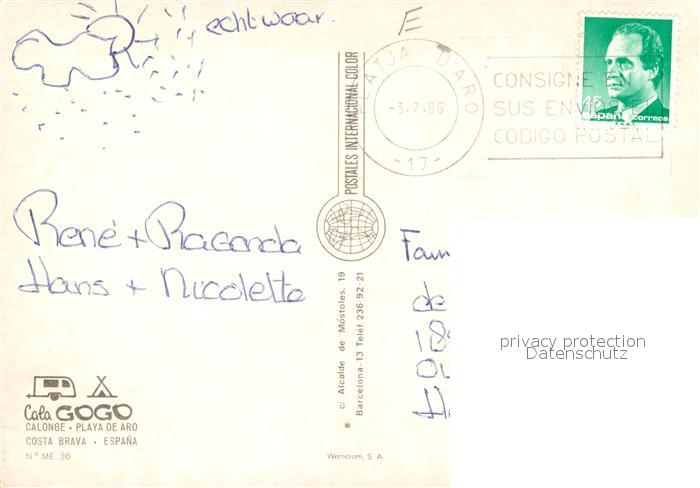 echt waar.
E
PLATJA D'ARO
-3.7.86
-17-
CONSIGNE EN
SUS ENVIOS EL
CODIGO POSTAL
15
españa correos
POSTALES INTERNACIONAL COLOR
René + Raganda
Hans + Nicolette
Fam
de
privacy protection
Datenschutz
* c/ Alcalde de Móstoles, 19
Barcelona-13 Teléf. 236-92-21
Cala GOGO
CALONGE · PLAYA DE ARO
COSTA BRAVA · ESPAÑA
N° ME. 36
Werticrom, S. A.